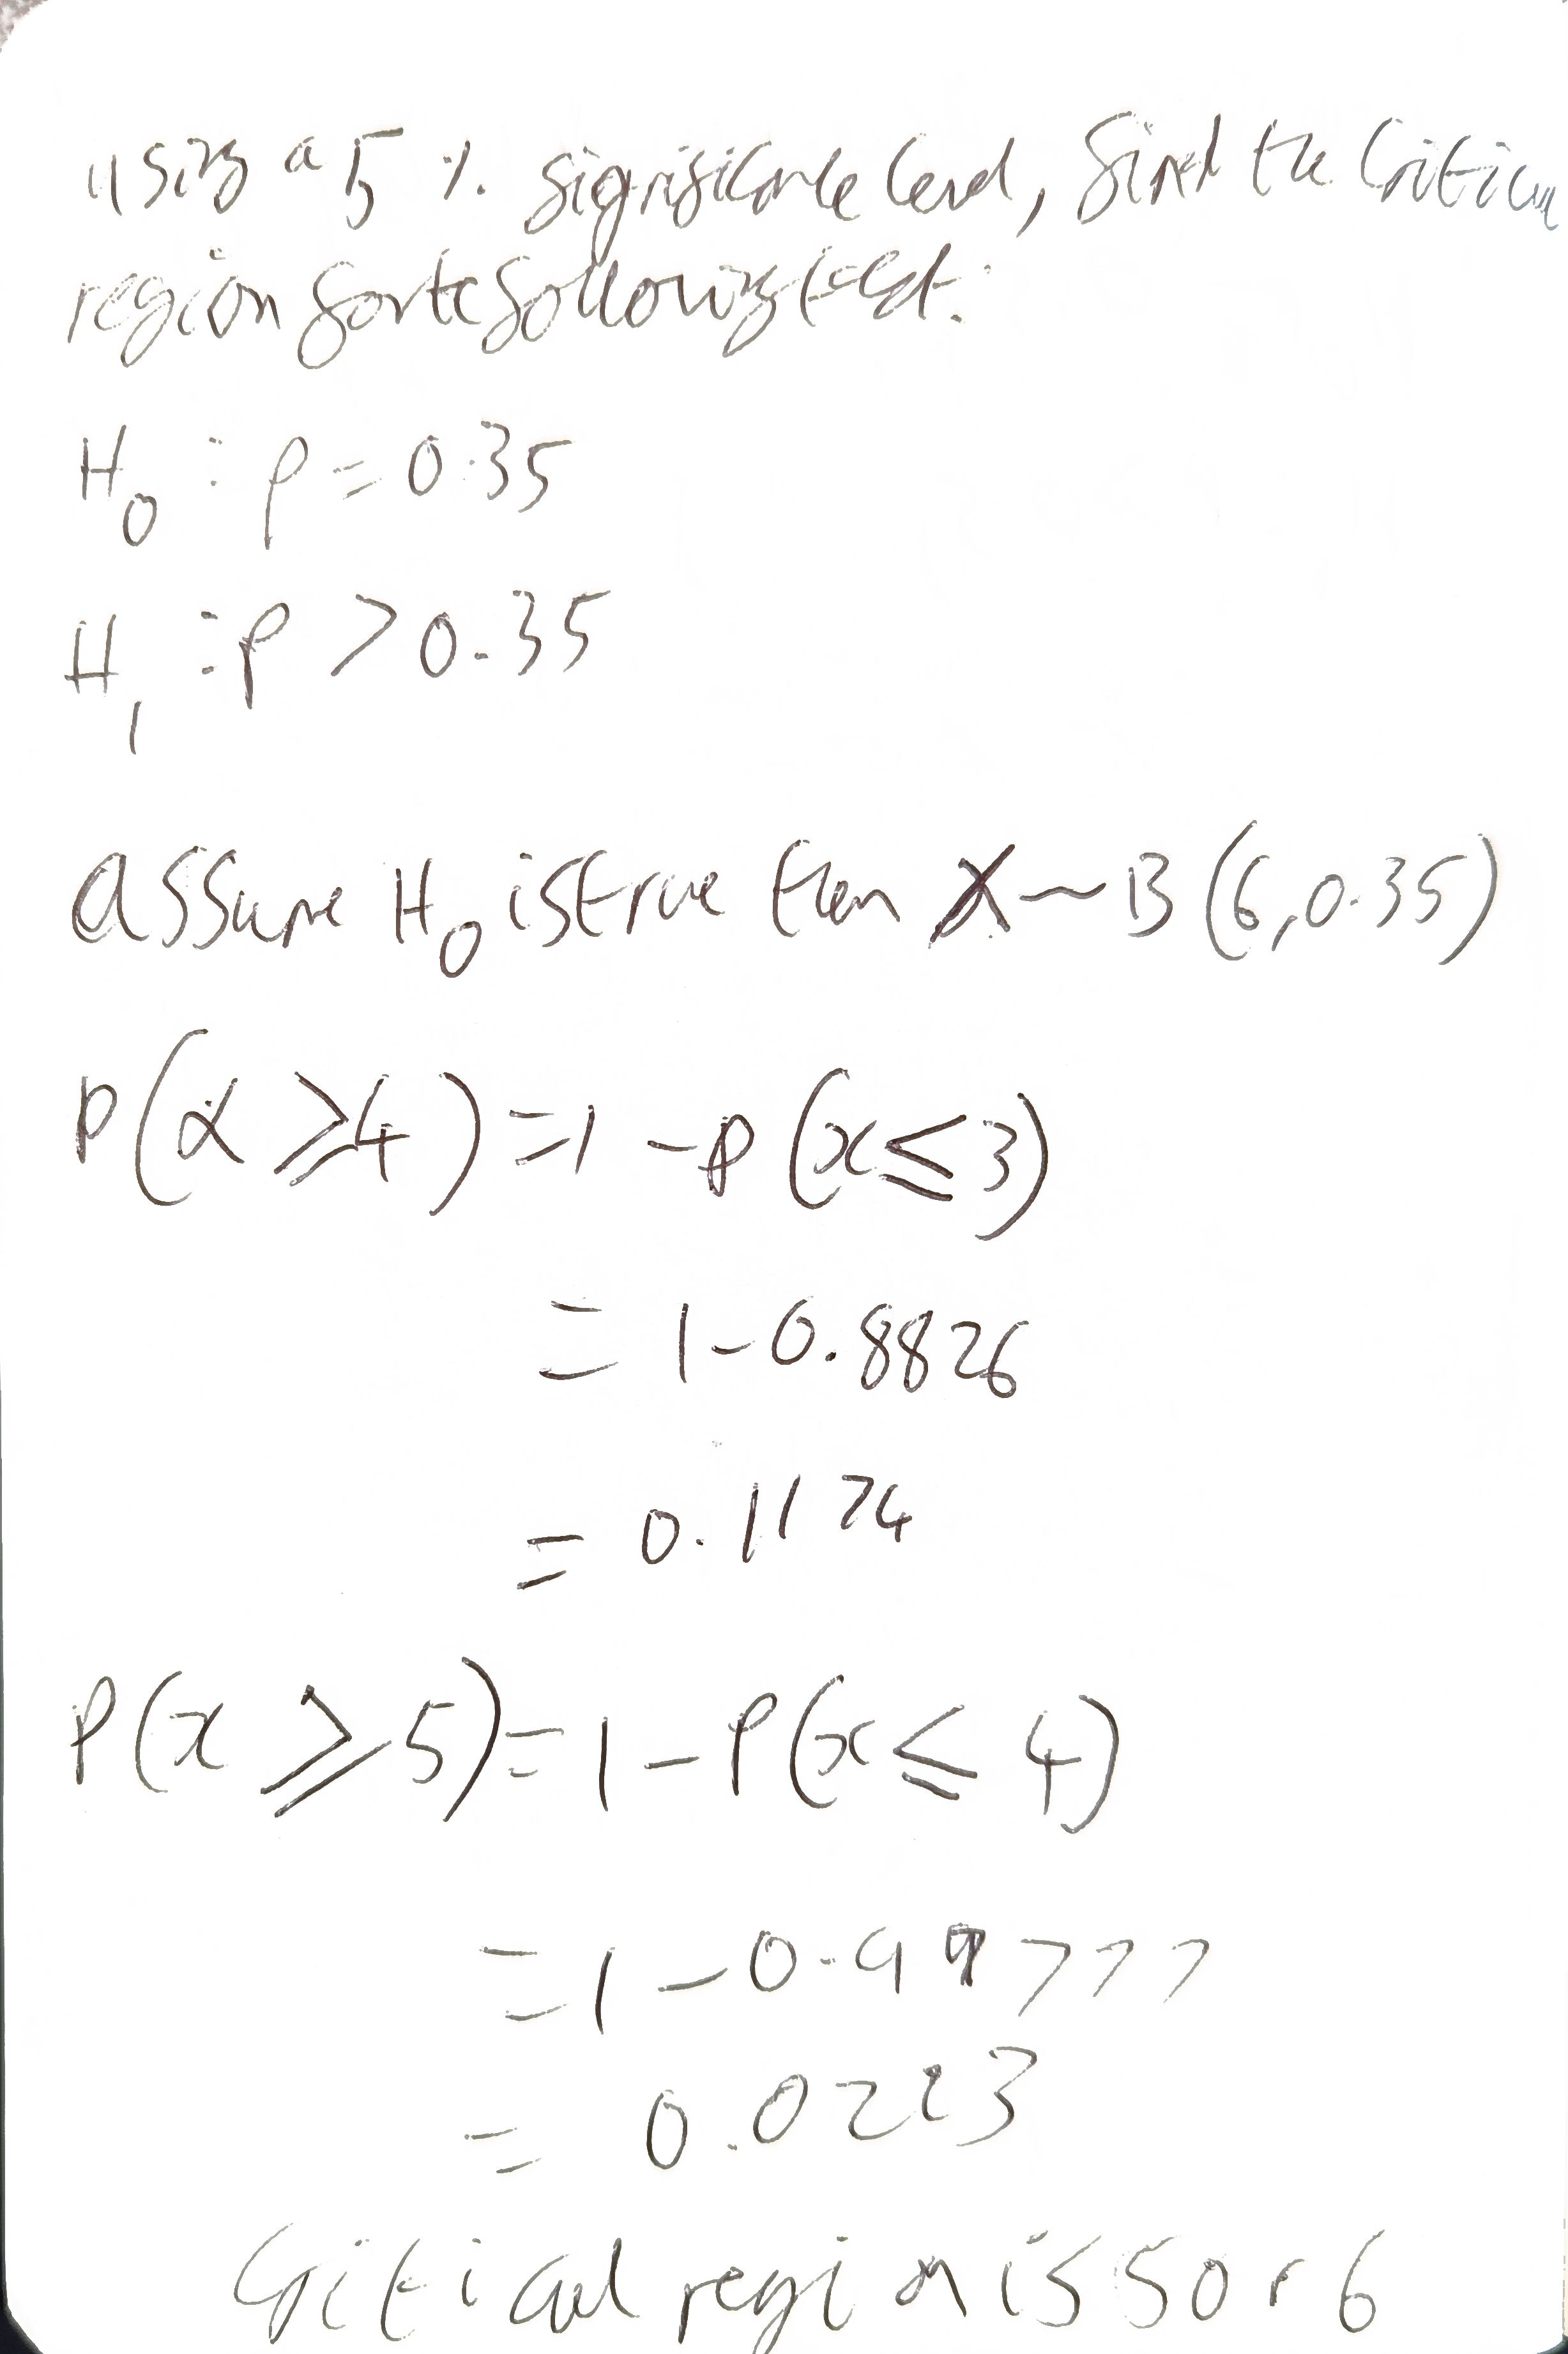 using a 5 %. significance level, find the critical
region for the following test:
H₀ : p = 0.35
H₁ : p > 0.35
assume H₀ is true then X ~ B (6, 0.35)
P(x ⩾ 4) = 1 - p (x ≤ 3)
= 1 - 0.8826
= 0.1174
P(x ⩾ 5) = 1 - P(x ≤ 4)
= 1 - 0.99777
= 0.0223
Critical region is 5 or 6